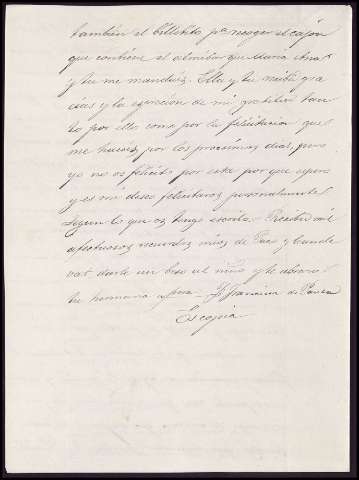 también el billetito pa. recoger el cajon
que contiene el almibar que Maria Ana
y tu me mandais. Ella y tu recibe gra
cias y la espresion de mi gratitud tan
to por ello como por la felicitacion que
me haceis por los proximos dias, pero
yo no os felicito por este por que espero
y es mi deseo felicitaros personalmente
segun lo que os tengo escrito. Recibe mil
afectuosos recuerdos mios de Paca y
dale un beso al niño y te abraza
tu hermano Francisco de Paula
Escofia